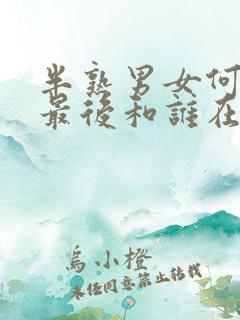 半熟男女何
最後和誰在
烏小橙
未經同意禁止轉載